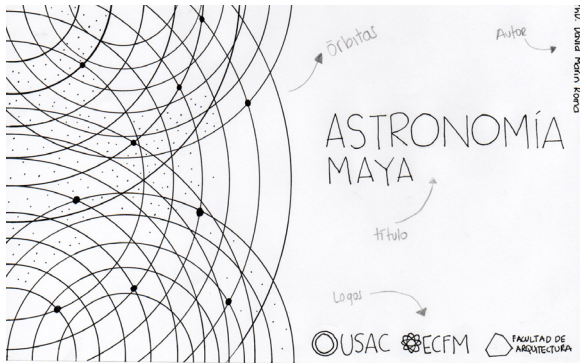 Órbitas
Autor
ASTRONOMÍA
MAYA
título
Logos
USAC ECFM FACULTAD DE
ARQUITECTURA